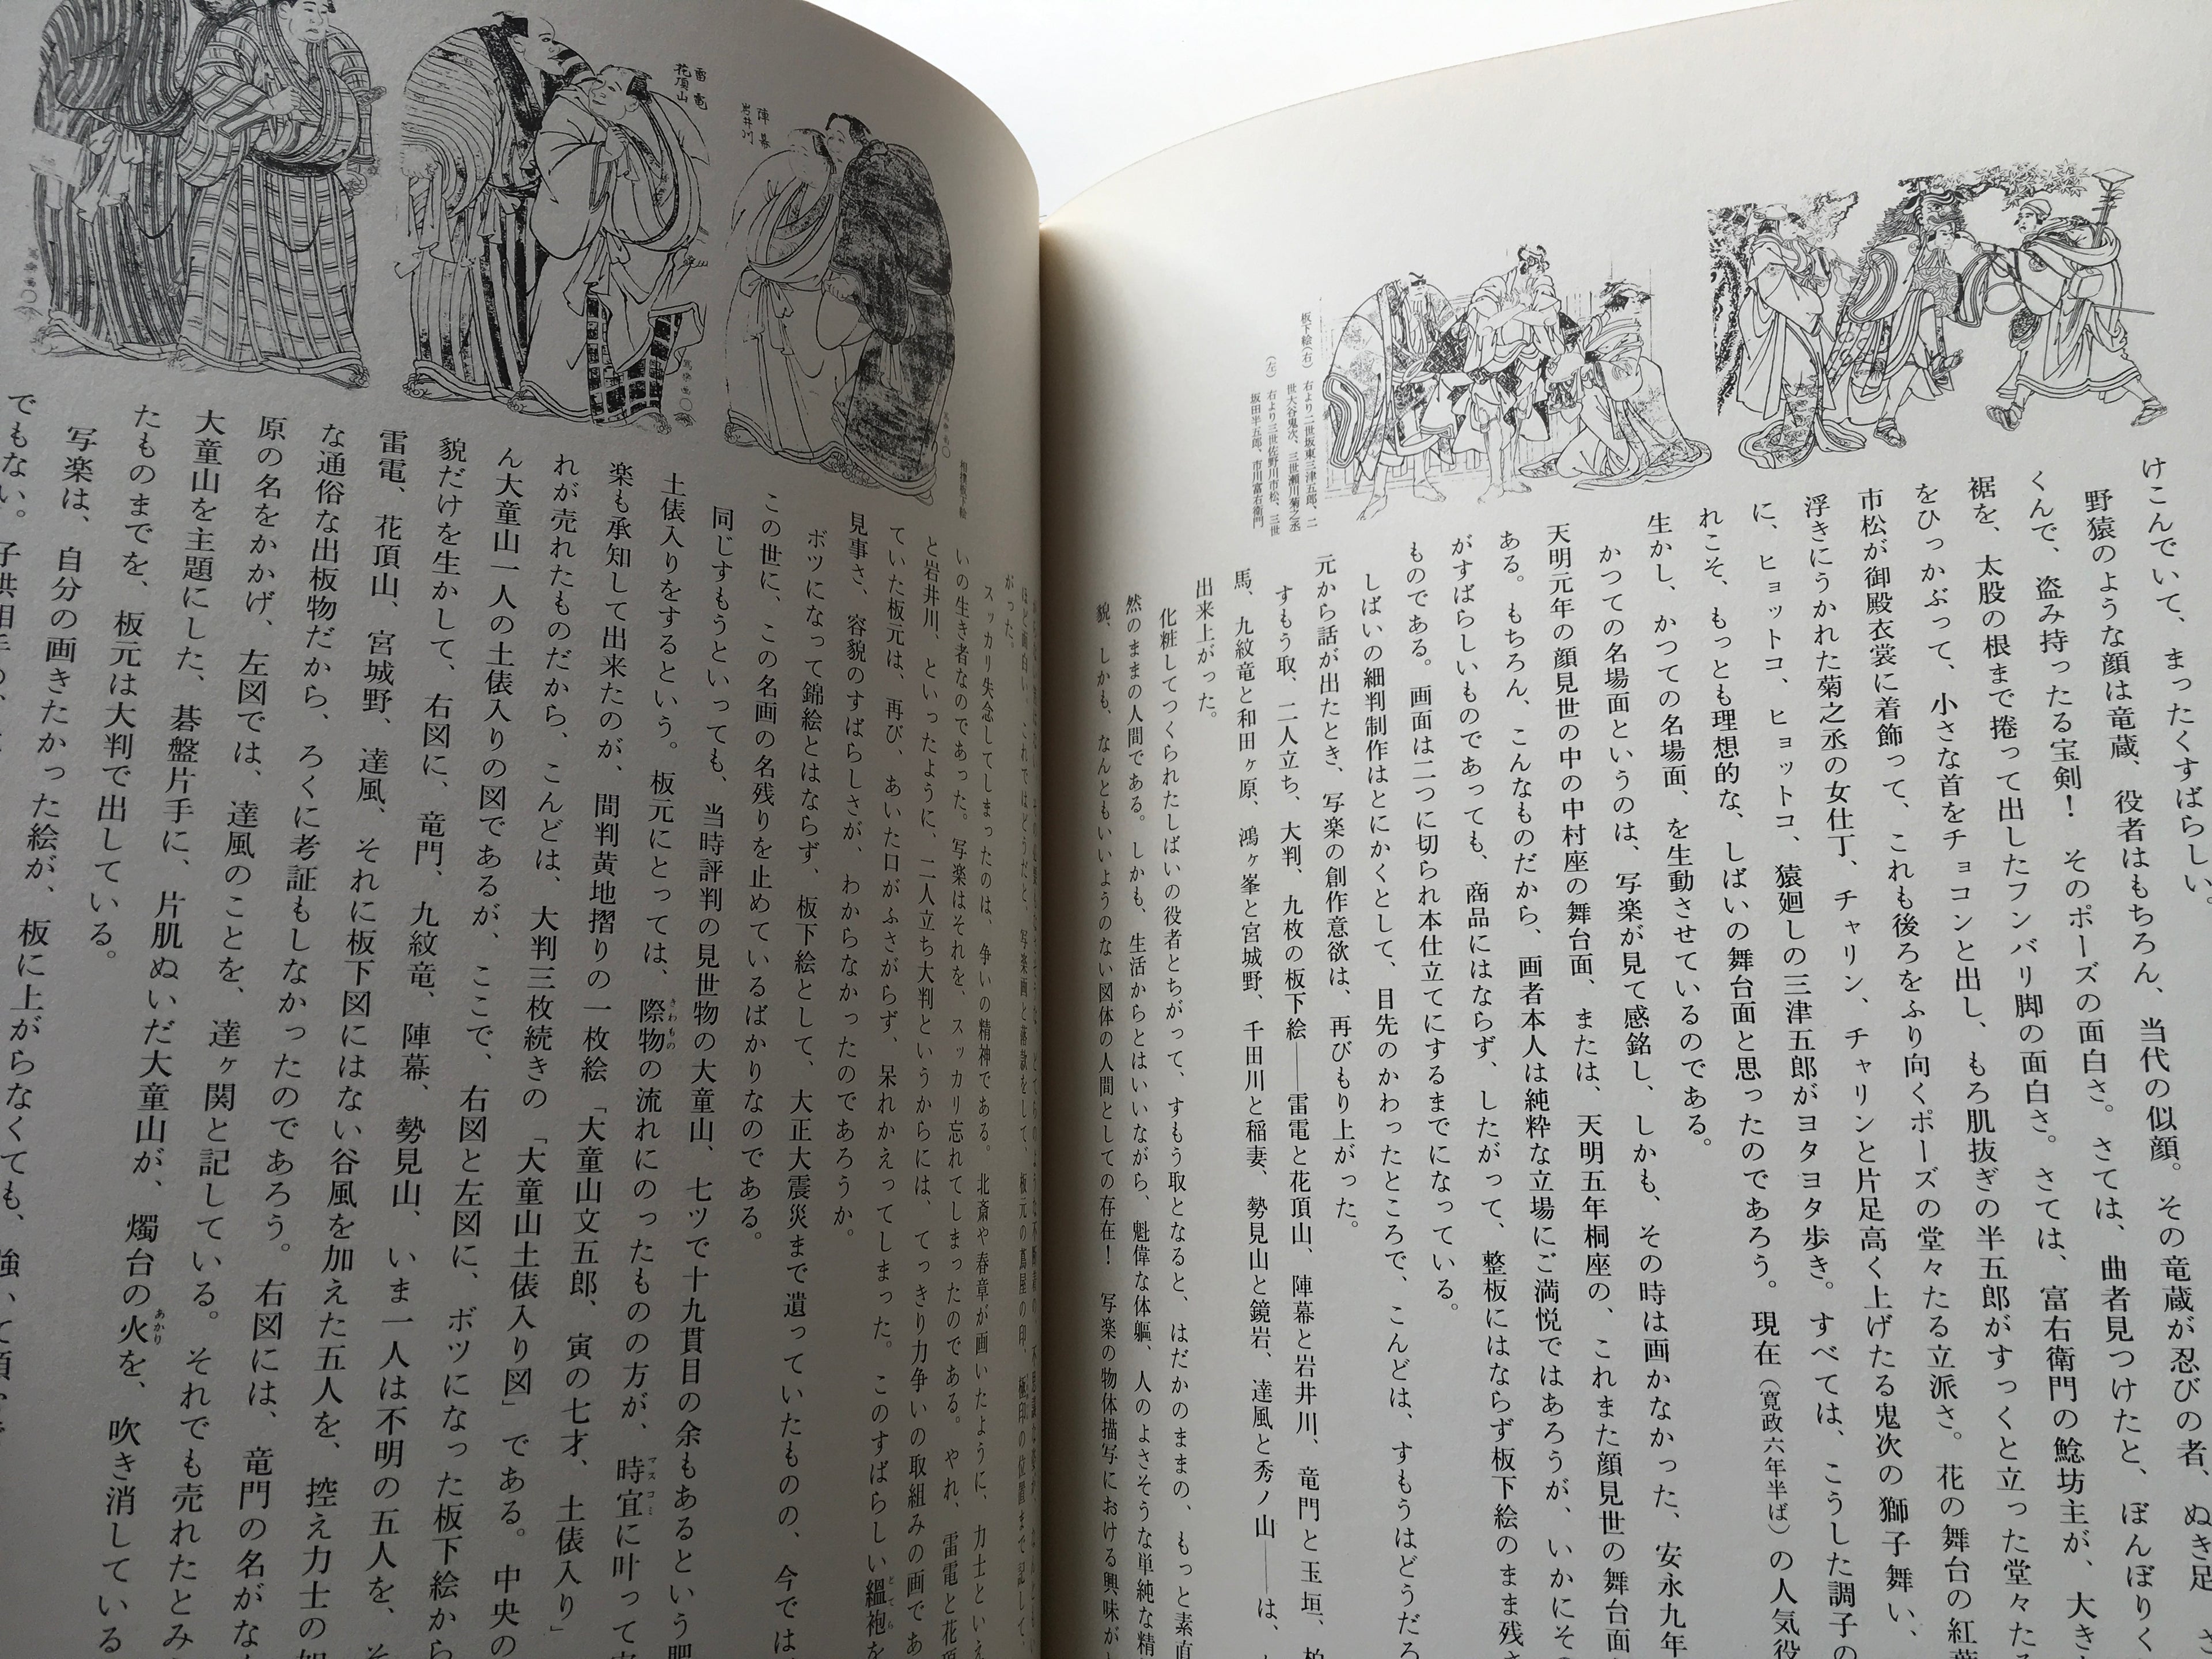 けこんでいて、まったくすばらしい。
野猿のような顔は竜蔵、役者はもちろん、当代の似顔。その竜蔵が忍びの者、ぬき足
くんで、盗み持ったる宝剣！　そのポーズの面白さ。さては、曲者見つけたと、ぼんぼりく
裾を、太股の根まで捲って出したフンバリ脚の面白さ。さては、富右衛門の鯰坊主が、大き
をひっかぶって、小さな首をチョコンと出し、もろ肌抜ぎの半五郎がすっくと立った堂々た
市松が御殿衣裳に着飾って、これも後ろをふり向くポーズの堂々たる立派さ。花の舞台の紅葉
浮きにうかれた菊之丞の女仕丁、チャリン、チャリンと片足高く上げたる鬼次の獅子舞い、
に、ヒョットコ、ヒョットコ、猿廻しの三津五郎がヨタヨタ歩き。すべては、こうした調子の
れこそ、もっとも理想的な、しばいの舞台面と思ったのであろう。現在（寛政六年半ば）の人気役
生かし、かつての名場面、を生動させているのである。
かつての名場面というのは、写楽が見て感銘し、しかも、その時は画かなかった、安永九年
天明元年の顔見世の中の中村座の舞台面、または、天明五年桐座の、これまた顔見世の舞台面
ある。もちろん、こんなものだから、画者本人は純粋な立場にご満悦ではあろうが、いかにそ
がすばらしいものであっても、商品にはならず、したがって、整板にはならず板下絵のまま残さ
ものである。画面は二つに切られ本仕立てにするまでになっている。
しばいの細判制作はとにかくとして、目先のかわったところで、こんどは、すもうはどうだろ
元から話が出たとき、写楽の創作意欲は、再びもり上がった。
すもう取、二人立ち、大判、九枚の板下絵――雷電と花頂山、陣幕と岩井川、竜門と玉垣、柏
馬、九紋竜と和田ヶ原、鴻ヶ峯と宮城野、千田川と稲妻、勢見山と鏡岩、達風と秀ノ山――は、
出来上がった。
化粧してつくられたしばいの役者とちがって、すもう取となると、はだかのままの、もっと素直
然のままの人間である。しかも、生活からとはいいながら、魁偉な体軀、人のよさそうな単純な精
貌、しかも、なんともいいようのない図体の人間としての存在！　写楽の物体描写における興味が
板下絵（右）　右より二世坂東三津五郎、二
世大谷鬼次、三世瀬川菊之丞
（左）　右より三世佐野川市松、三世
坂田半五郎、市川富右衛門
がった。
スッカリ失念してしまったのは、争いの精神である。北斎や春章が画いたように、力士といえ
いの生き者なのであった。写楽はそれを、スッカリ忘れてしまったのである。やれ、雷電と花頂
と岩井川、といったように、二人立ち大判というからには、てっきり力争いの取組みの画であ
ていた板元は、再び、あいた口がふさがらず、呆れかえってしまった。このすばらしい縕袍を
見事さ、容貌のすばらしさが、わからなかったのであろうか。
ボツになって錦絵とはならず、板下絵として、大正大震災まで遺っていたものの、今では
この世に、この名画の名残りを止めているばかりなのである。
同じすもうといっても、当時評判の見世物の大童山、七ツで十九貫目の余もあるという肥
土俵入りをするという。板元にとっては、際物の流れにのったものの方が、時宜に叶って
楽も承知して出来たのが、間判黄地摺りの一枚絵「大童山文五郎、寅の七才、土俵入り」
れが売れたものだから、こんどは、大判三枚続きの「大童山土俵入り図」である。中央の
ん大童山一人の土俵入りの図であるが、ここで、右図と左図に、ボツになった板下絵から
貌だけを生かして、右図に、竜門、九紋竜、陣幕、勢見山、いま一人は不明の五人を、そ
雷電、花頂山、宮城野、達風、それに板下図にはない谷風を加えた五人を、控え力士の
な通俗な出板物だから、ろくに考証もしなかったのであろう。右図には、竜門の名がな
原の名をかかげ、左図では、達風のことを、達ヶ関と記している。それでも売れたとみ
大童山を主題にした、碁盤片手に、片肌ぬいだ大童山が、燭台の火を、吹き消している
たものまでを、板元は大判で出している。
写楽は、自分の画きたかった絵が、板に上がらなくても、強
でもない。子供相手の、
相撲板下絵
陣幕
岩井川
雷電
花頂山